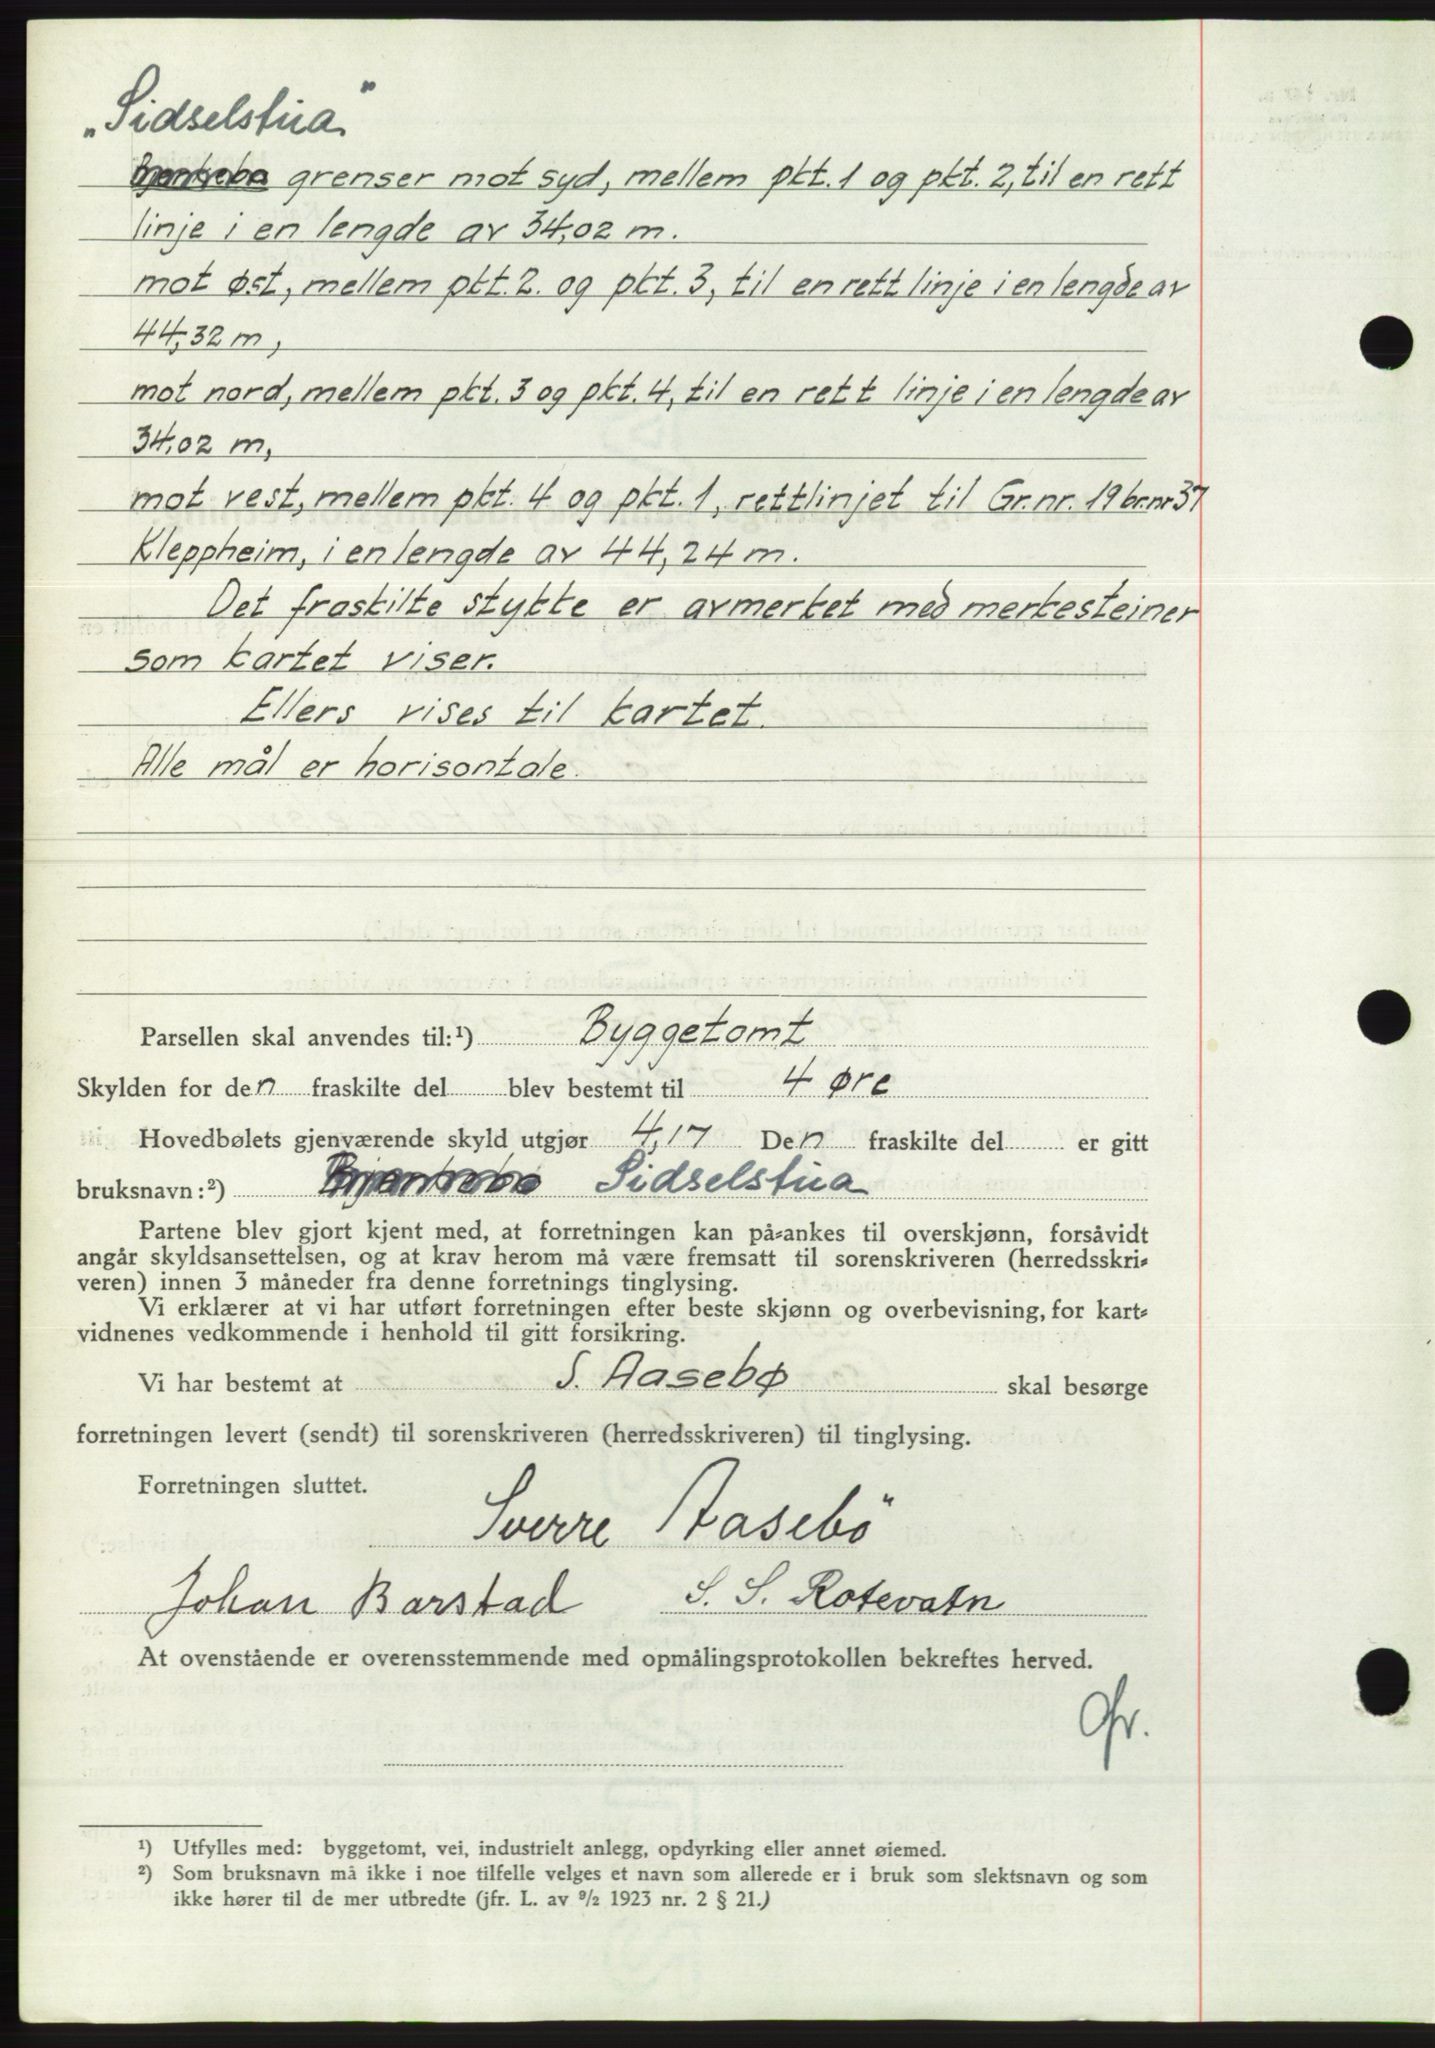 „Sidselstua”
grenser mot syd, mellem pkt. 1 og pkt. 2, til en rett
linje i en lengde av 34,02 m.
mot øst, mellem pkt. 2. og pkt. 3, til en rett linje i en lengde av
44,32 m,
mot nord, mellem pkt. 3 og pkt. 4, til en rett linje i en lengde av
34,02 m,
mot vest, mellem pkt. 4 og pkt. 1, rettlinjet til Gr.nr. 19 br.nr 37
Kleppheim, i en lengde av 44,24 m.
Det fraskilte stykke er avmerket med merkesteiner
som kartet viser.
Ellers vises til kartet.
Alle mål er horisontale.
Parsellen skal anvendes til:¹) Byggetomt
Skylden for den fraskilte del blev bestemt til 4 øre
Hovedbølets gjenværende skyld utgjør 4,17 Den fraskilte del er gitt
bruksnavn:²) Sidselstua
Partene blev gjort kjent med, at forretningen kan på-ankes til overskjønn, forsåvidt
angår skyldsansettelsen, og at krav herom må være fremsatt til sorenskriveren (herredsskri-
veren) innen 3 måneder fra denne forretnings tinglysing.
Vi erklærer at vi har utført forretningen efter beste skjønn og overbevisning, for kart-
vidnenes vedkommende i henhold til gitt forsikring.
Vi har bestemt at S. Aasebø skal besørge
forretningen levert (sendt) til sorenskriveren (herredsskriveren) til tinglysing.
Forretningen sluttet.
Sverre Aasebö
Johan Barstad S. S. Rotevatn
At ovenstående er overensstemmende med opmålingsprotokollen bekreftes herved.
¹) Utfylles med: byggetomt, vei, industrielt anlegg, opdyrking eller annet øiemed.
²) Som bruksnavn må ikke i noe tilfelle velges et navn som allerede er i bruk som slektsnavn og som
ikke hører til de mer utbredte (jfr. L. av ⁹/₂ 1923 nr. 2 § 21.)